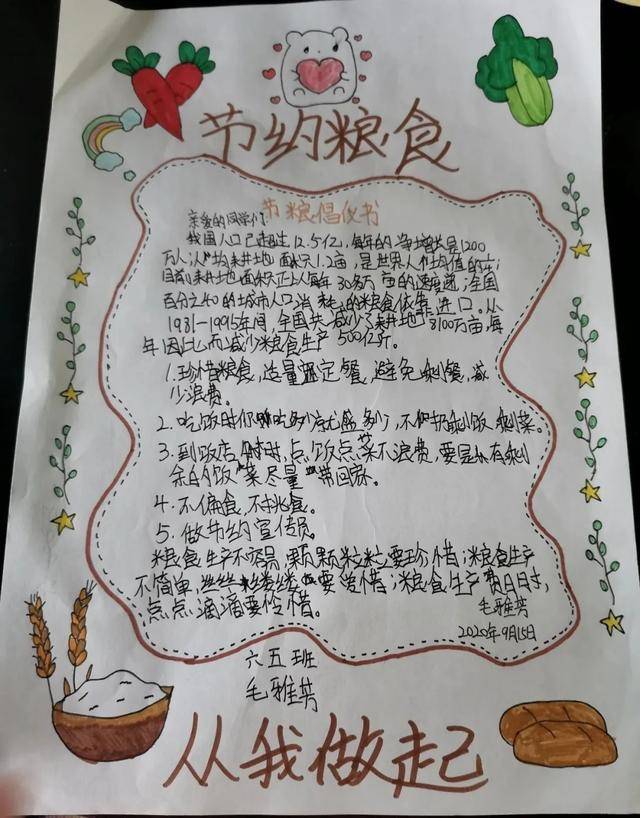 节约粮食
节粮倡仪书
亲爱的同学们
我国人口已超过12.5亿,每年的净增长是1200
万人;人均耕地面积1.2亩,是世界人均值的
目前耕地面积正以每年30多万亩的速度递;全国
百分之40的城市人口消耗的粮食依靠进口。从
1981-1995年间,全国共减少了耕地8100万亩,每
年因此而减少粮食生产500亿斤。
1.珍惜粮食,适量定餐,避免剩餐,减
少浪费。
2.吃饭时你吃多少就盛多少,不扔剩饭剩菜。
3.到饭店时,点饭点菜不浪费,要是有剩
余的饭菜尽量带回家。
4.不偏食,不挑食。
5.做节约宣传员。
粮食生产不容易,颗颗粒粒要珍惜;粮食生产
不简单,丝丝缕缕要爱惜;粮食生产费日时,
点点滴滴要怜惜。
毛雅芳
2020年9月15日
六五班
毛雅芳
从我做起